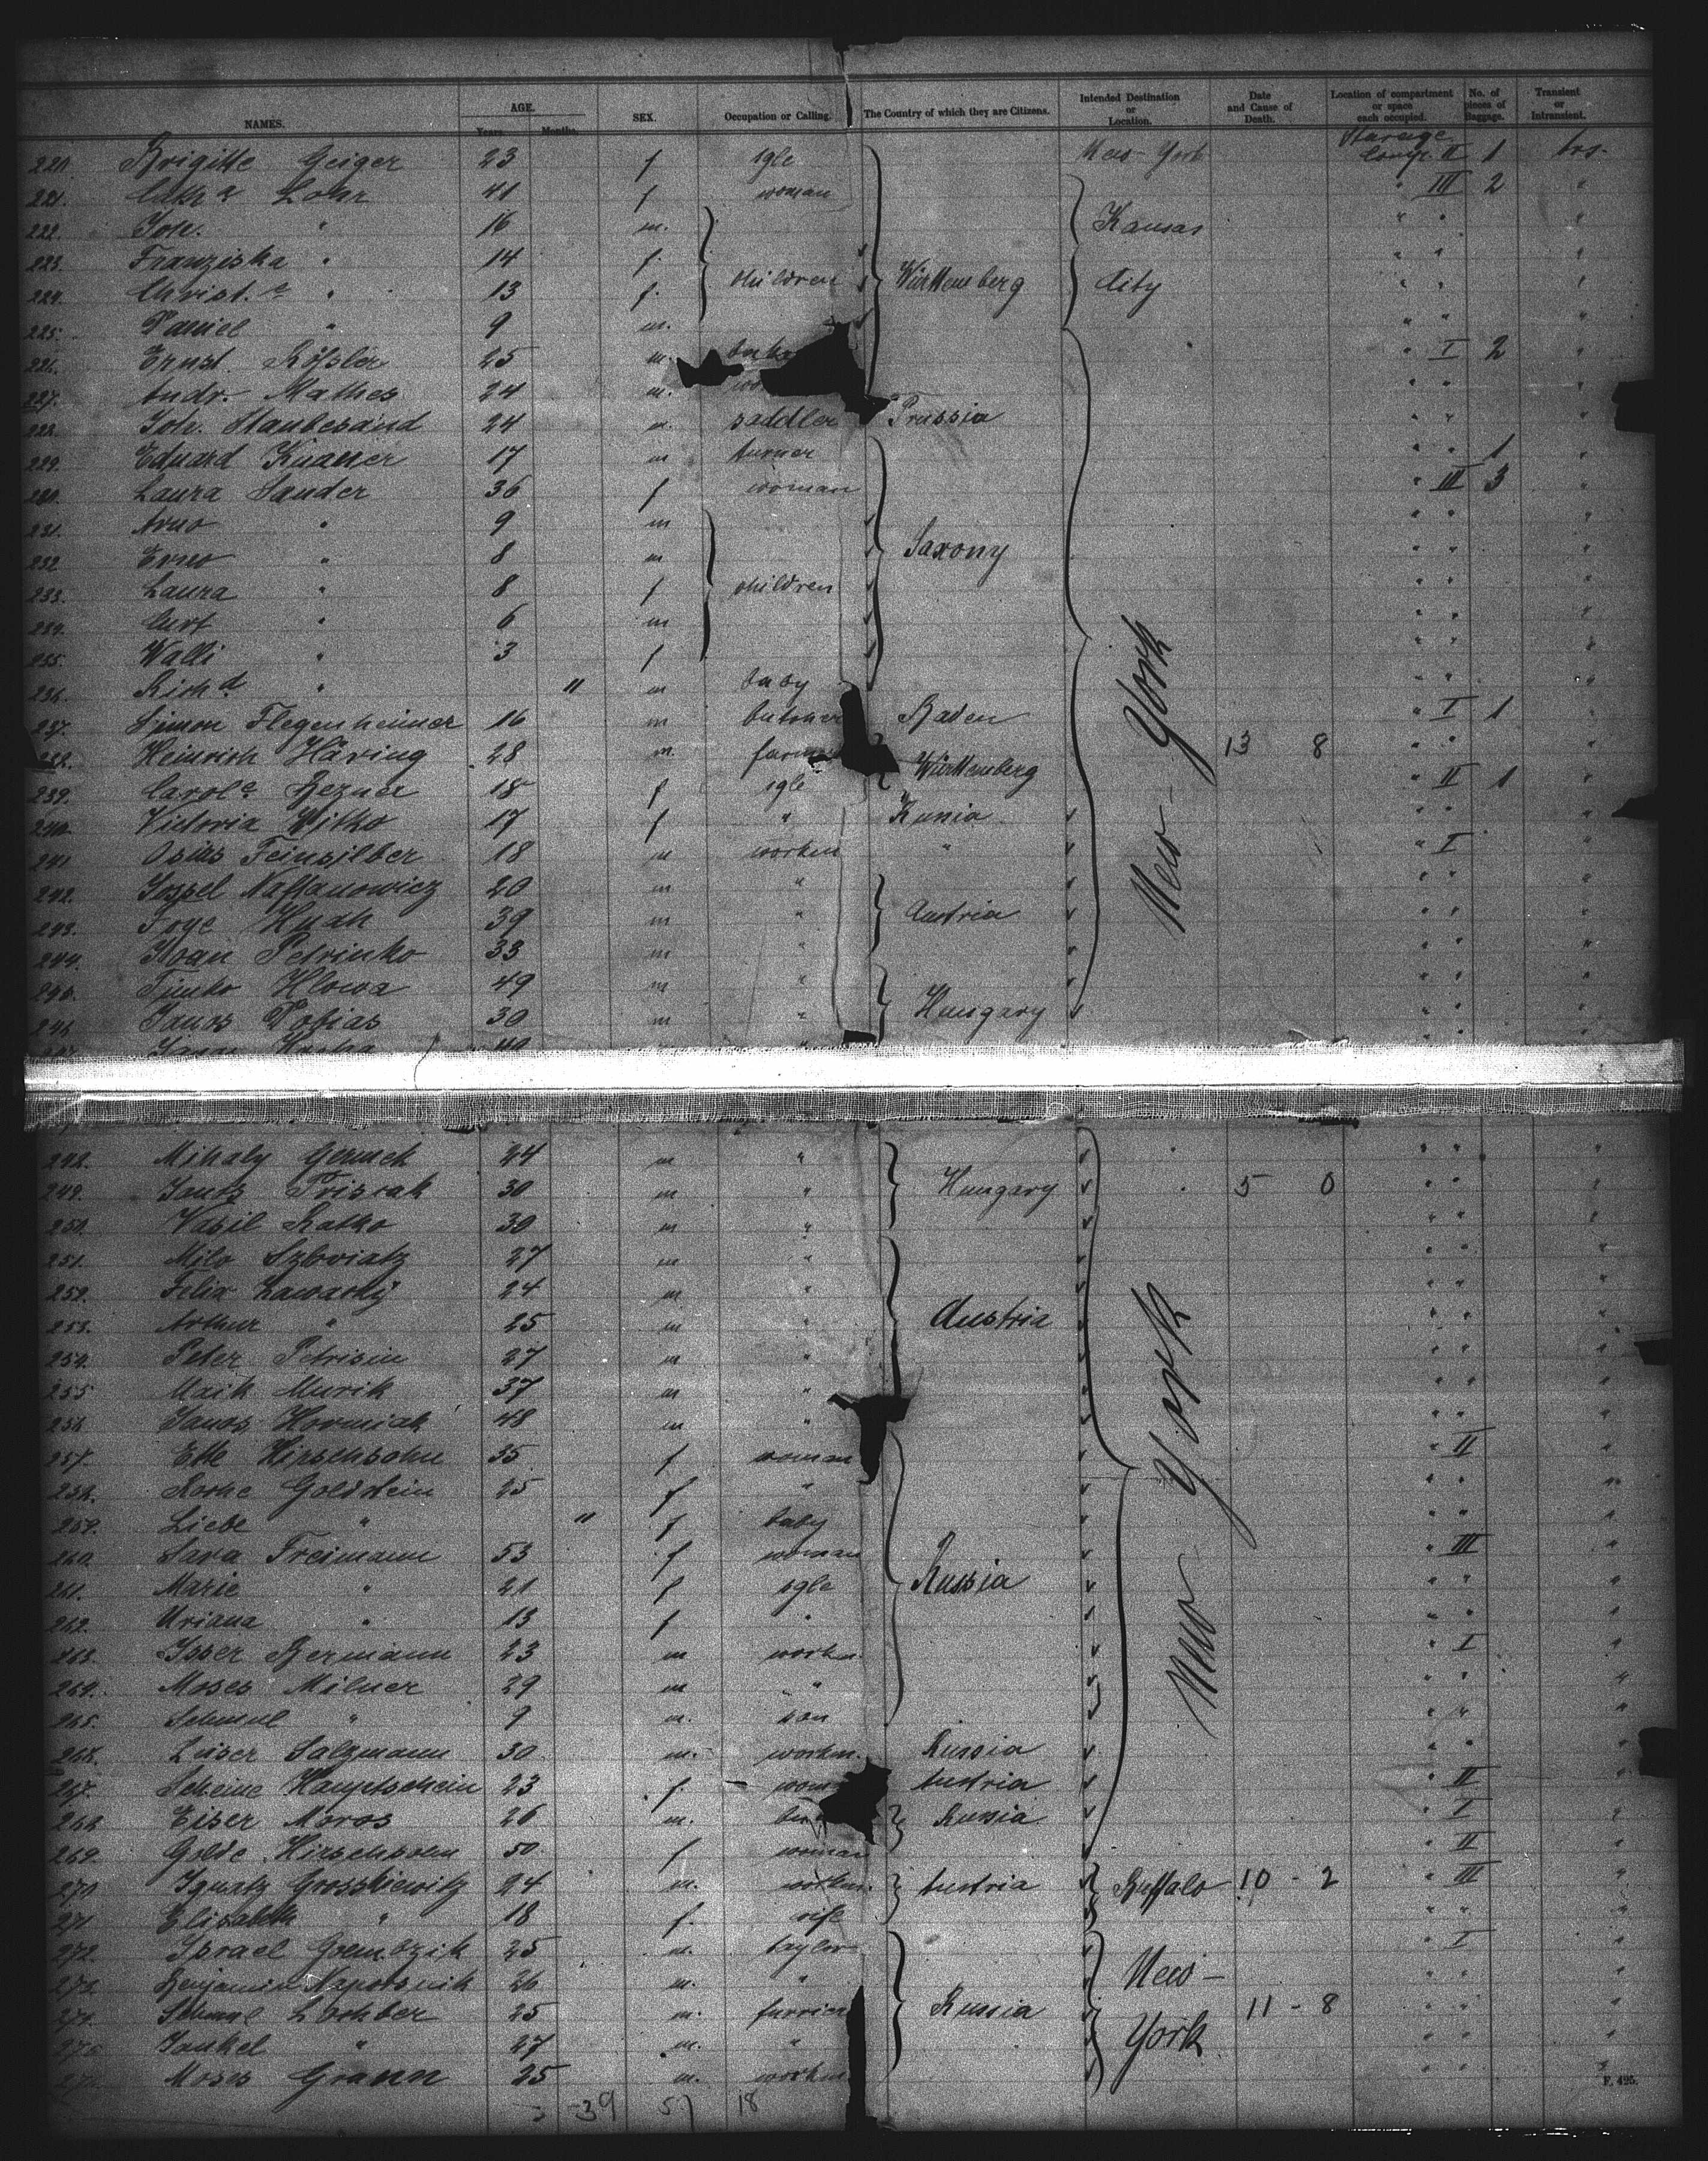 NAMES. AGE. Years. Months. SEX. Occupation or Calling. The Country of which they are Citizens. Intended Destination or Location. Date and Cause of Death. Location of compartment or space each occupied. No. of pieces of Baggage. Transient or Intransient.
220. Brigitte Geiger 23 f sgle New-York Compt. II 1
221. Cath.a Lohr 41 f woman " III 2 "
222. Joh. " 16 m. Kansas " " "
223. Franziska " 14 f. " " "
224. Christ.e " 13 f. children Württemberg City " " "
225. Daniel " 9 m. " " "
226. Ernst 25 m. " I 2 "
227. Andr. Mathes 24 m. " " "
228. Joh. Staubesand 24 m. saddler Prussia " " "
229. Eduard Knauer 17 m turner " " 1 "
230. Laura Sander 36 f woman " III 3 "
231. Arno " 9 m " " "
232. Erno " 8 m Saxony " " "
233. Laura " 8 f children " " "
234. Curt " 6 m " " "
235. Walli " 3 f " " "
236. Rich.d " 11 m baby " " "
237. Simon Flegenheimer 16 m butcher Baden " I 1 "
238. Heinrich Häring 28 m. farmer Württemberg 13 8 " " "
239. Carol.e 18 f sgle " II 1 "
240. Victoria Witko 17 f " Russia " " "
241. Osias Feinsilber 18 m workm " " I "
242. Jossel Naftanowicz 20 m " " " "
243. 39 m " Austria " " "
244. Iwan Petrinko 33 m " " " "
245. Hlowa 49 m " " " "
246. Janos Tobias 30 m " Hungary " " "
New-York
248. Mihaly 44 m " " " "
249. Janos 30 m " Hungary 5 0 " " "
250. Vasil Ratko 30 m " " " "
251. Milo 27 m " " " "
252. Felix 24 m " " " "
253. Arthur " 25 m " Austria " " "
254. Peter Petrisin 27 m " " " "
255. Maik Murik 37 m " " " "
256. Janos Hormiak 48 m " " " "
257. Ette Hirschsohn 35 f woman " II "
258. Goldstein 25 f " " " "
259. Liebe " 11 f baby " " "
260. Sara Freimann 53 f woman " III "
261. Marie " 21 f sgle Russia " " "
262. Uriana " 13 f " " " "
263. Isser Bermann 23 m workm. " I "
264. Moses Milner 29 m " " " "
265. Schmul " 9 m. son " " "
266. Leiser Salzmann 30 m. workm. Russia " " "
267. Scheine Hauptschein 23 f. woman Austria " II "
268. Eiser Moros 26 m. Russia " I "
269. Golde Hirschsohn 50 f woman " II "
270. Ignatz Grosskiewitz 24 m. workm. Austria Buffalo 10 - 2 " III "
271. Elisabeth " 18 f. wife " " "
272. Israel 25 m. taylor " I "
273. Benjamin 26 m. " New- " " "
274. Schmul Lochber 25 m. furrier Russia 11 - 8 " " "
275. Jankel " 27 m. " York " " "
276. Moses Grann 25 m. workm " "
New York
F. 425.
39 57 18